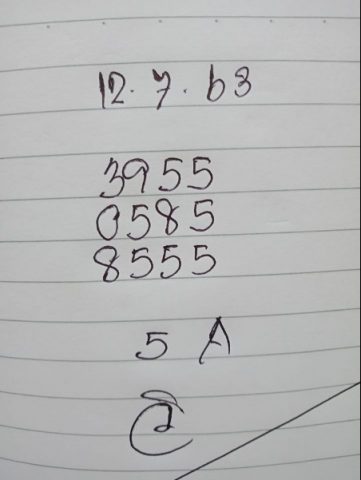 12.7.63
3955
0585
8555
5 A